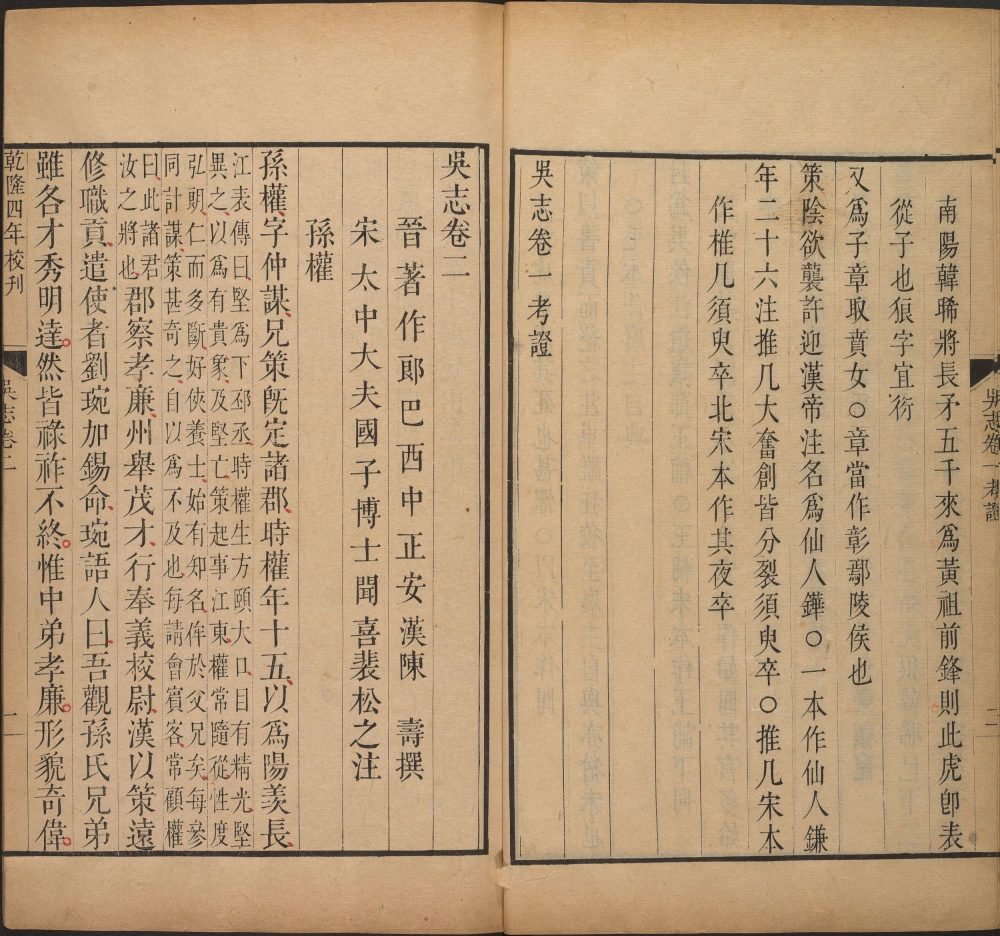 南陽韓晞將長矛五千來爲黃祖前鋒則此虎卽表
從子也狼字宜衍
又爲子章取賁女○章當作彰鄢陵侯也
策陰欲襲許迎漢帝注名爲仙人鏵○一本作仙人鎌
年二十六注推几大奮創皆分裂須臾卒○推几宋本
作椎几須臾卒北宋本作其夜卒
吳志卷一考證
吳志卷一考證
二
吳志卷二
晉著作郎巴西中正安漢陳壽撰
宋太中大夫國子博士聞喜裴松之注
孫權
孫權字仲謀兄策旣定諸郡時權年十五以爲陽羨長
江表傳曰堅爲下邳丞時權生方頤大口目有精光堅
異之以爲有貴象及堅亡策起事江東權常隨從性度
弘朗仁而多斷好俠養士始有知名侔於父兄矣每參
同計謀策甚奇之自以爲不及也每請會賓客常顧權
曰此諸君
汝之將也郡察孝廉州舉茂才行奉義校尉漢以策遠
修職貢遣使者劉琬加錫命琬語人曰吾觀孫氏兄弟
雖各才秀明達然皆祿祚不終惟中弟孝廉形貌奇偉
乾隆四年校刊
吳志卷二
一